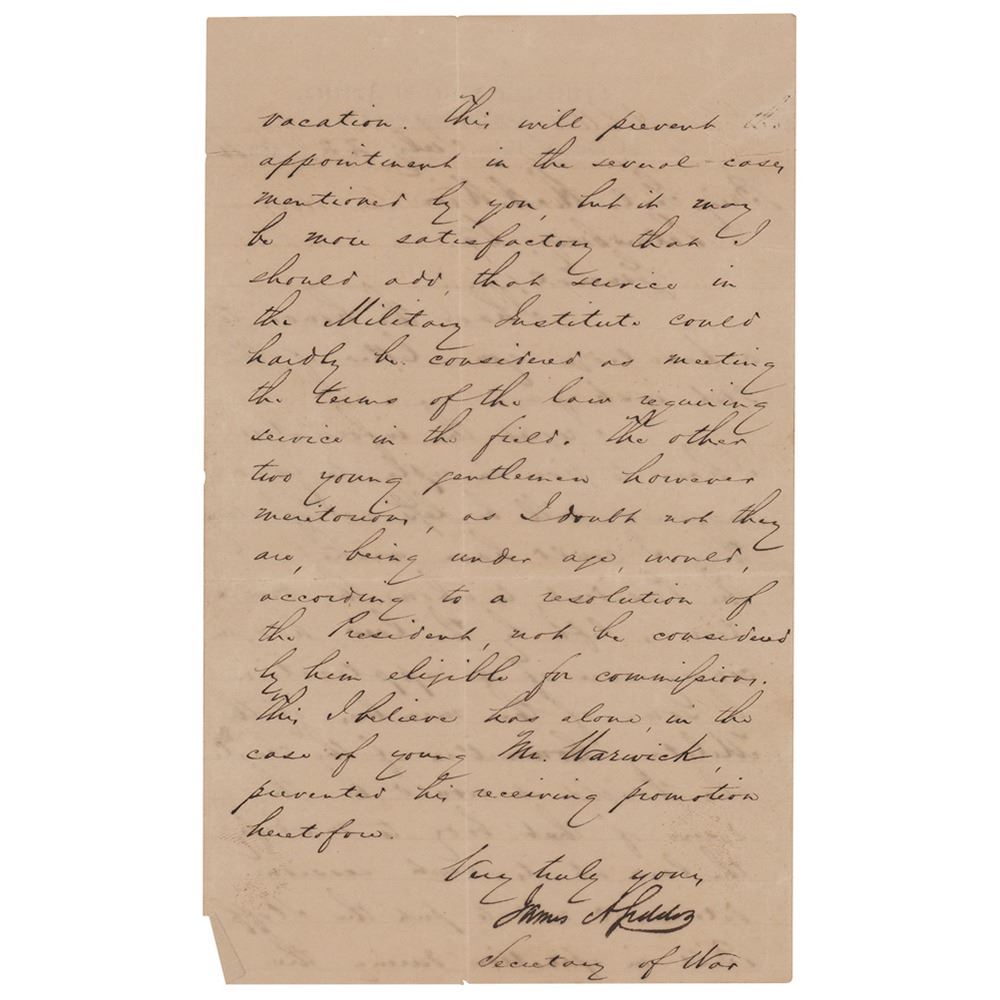 vacation. This will prevent
appointment in the several cases
mentioned by you, but it may
be more satisfactory that I
should add, that service in
the Military Institute could
hardly be considered as meeting
the terms of the law requiring
service in the field. The other
two young gentlemen however
meritorious, as I doubt not they
are, being under age, would,
according to a resolution of
the President, not be considered
by him eligible for commissions.
This I believe has alone, in the
case of young Mr. Warwick,
prevented his receiving promotion
heretofore.
Very truly yours,
James A Seddon
Secretary of War